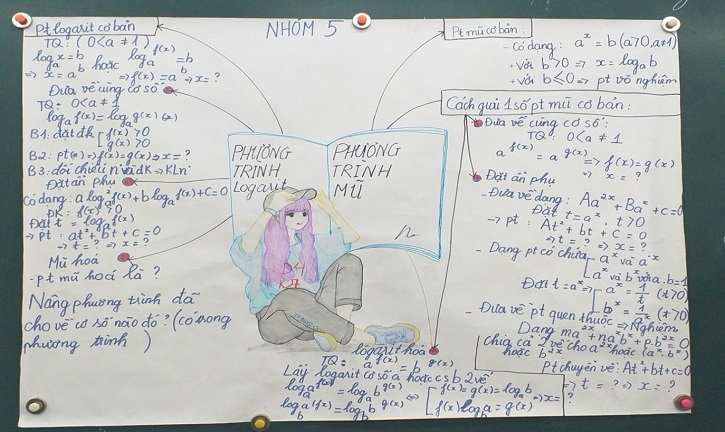 NHÓM 5
Pt logarit cơ bản
TQ: (0<a≠1)
logₐx=b hoặc logₐf(x)=b
=> x=aᵇ => f(x)=aᵇ => x=?
Đưa về cùng cơ số
TQ: 0<a≠1
logₐf(x)=logₐg(x) (*)
B1: đặt đk [f(x)>0
g(x)>0
B2: pt(*)=>f(x)=g(x)=>x=?
B3: đối chiếu n° và đk=>KLn°
Đặt ẩn phụ
Có dạng: a log²f(x)+b logₐf(x)+c=0
ĐK: f(x)>0
Đặt t=logₐf(x)
-> pt: at²+bt+c=0
=> t=? => x=?
Mũ hoá
- pt mũ hoá là?
Nâng phương trình đã
cho về cơ số nào đó? (có trong
phương trình)
PHƯƠNG
TRÌNH
Logarit
PHƯƠNG
TRÌNH
MŨ
Pt mũ cơ bản:
- Có dạng: aˣ=b (a>0,a≠1)
+ với b>0 => x=logₐb
+ với b≤0 => pt vô nghiệm
Cách giải 1 số pt mũ cơ bản:
Đưa về cùng cơ số:
TQ: 0<a≠1
a^f(x) = a^g(x) => f(x)=g(x)
=> x=?
Đặt ẩn phụ
- Đưa về dạng: Aa²ˣ+Baˣ+c=0
Đặt t=aˣ, t>0
-> pt: At²+bt+c=0
=> t=? => x=?
- Dạng pt có chứa [aˣ và a⁻ˣ
aˣ và bˣ với a.b=1
Đặt t=aˣ=>[a⁻ˣ=1/t (t>0)
bˣ=1/t (t>0)
- Đưa về pt quen thuộc => Nghiệm
Dạng ma²ˣ+naˣbˣ+p.b²ˣ=0
chia cả 2 vế cho a²ˣ hoặc (aˣ.bˣ)
hoặc b²ˣ
Pt chuyển về: At²+bt+c=0
=> t=? => x=?
logarit hoá
TQ: a^f(x) = b^g(x)
Lấy logarit cơ số a hoặc cs b 2 vế
logₐa^f(x) = logₐb^g(x) <=> [f(x)=g(x)=logₐb => x=?
log_b a^f(x) = log_b b^g(x) [f(x)log_b a=g(x)